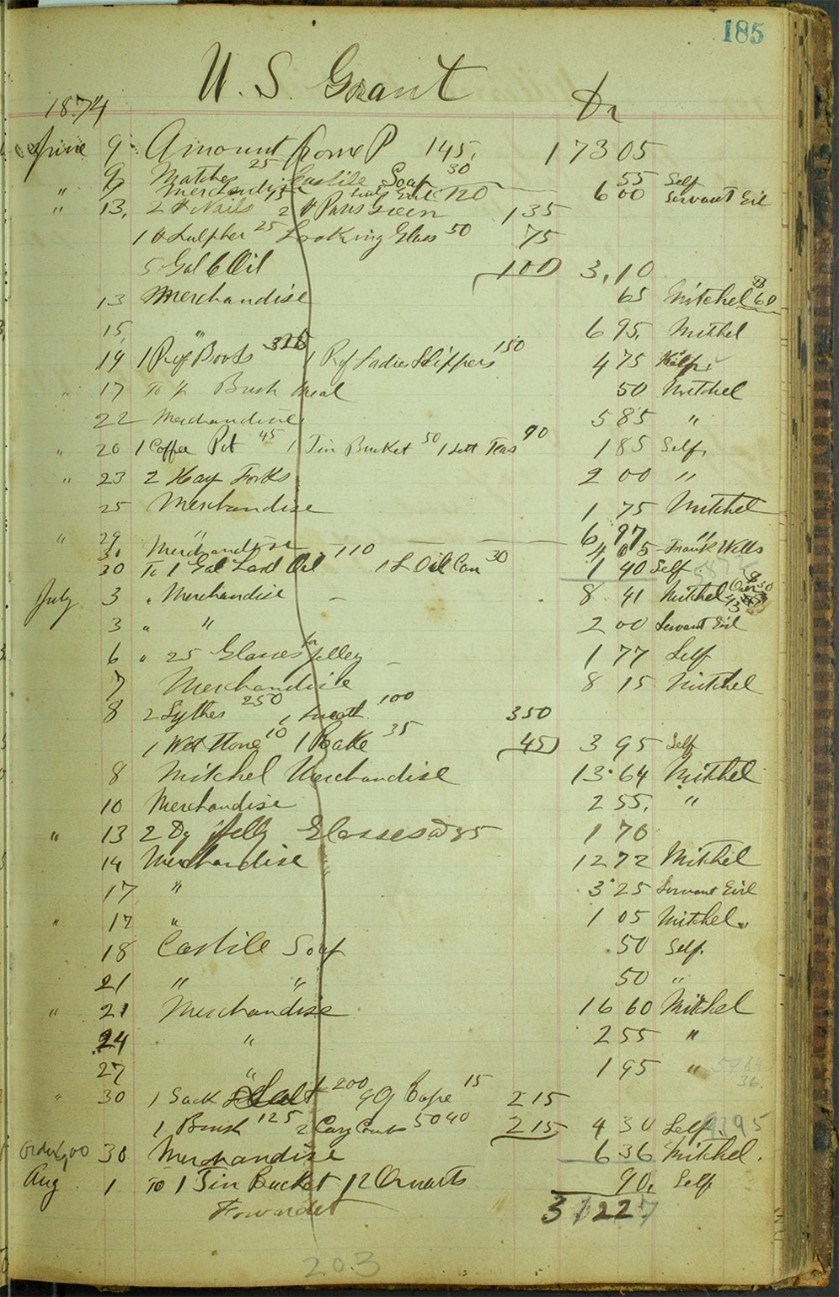 185
U. S. Grant
1874 Dr
June 9 Amount from P 145, 173 05
9 Matches 25 Castile Soap 30 55 Self
" 9 Merchandise 6 00 Servant Girl
" 13, 2 # Nails 2 # Paris Green 120 1 35
1 # Sulpher 25 Looking Glass 50 75
5 Gal C Oil 1 00 3,10
13 Merchandise 65 Mitchel 60
15, " 6 95, Mitchel
14 1 Pr Boots 325 1 Pr Ladies Slippers 150 4 75 Self
17 To Bush Meal 50 Mitchel
22 Merchandise 5 85 "
" 20 1 Coffee Pot 45 1 Tin Bucket 50 1 Sett Teas 90 1 85 Self,
" 23 2 Hay Forks 2 00 "
25 Merchandise 1 75 Mitchel
" 29 " 6,97 "
30 Merchandise 4 05 Frank Wells
30 To 1 Gal Lard Oil 110 1 L Oil Can 30 1 40 Self
July 3 " Merchandise 8 41 Mitchel
3 " " 2 00 Servant Girl
6 " 25 Glasses for Jelley 1 77 Self
7 Merchandise 8 15 Mitchel
8 2 Sythes 250 1 Sneath 100 3 50
1 Wet Stone 10 1 Rake 35 45 3 95 Self
8 Mitchel Merchandise 13.64 Mitchel
10 Merchandise 2 55, "
" 13 2 Dz Jelly Glasses @ 85 1 70
14 Merchandise 12 72 Mitchel
17 " 3.25 Servant Girl
" 17 " 1 05 Mitchel
18 Castile Soap .50 Self.
21 " " 50 "
" 21 Merchandise 16 60 Mitchel
24 " 2 55 "
27 " 1 95 "
" 30 1 Sack Salt 200 Rope 15 2 15
1 Brush 125 2 Cary Combs 50 40 2 15 4 30 Self.
Order 30 Merchandise 6 36 Mitchel.
Aug 1 To 1 Tin Bucket 12 Quarts 90, Self
Forwarded 3 12 27
203